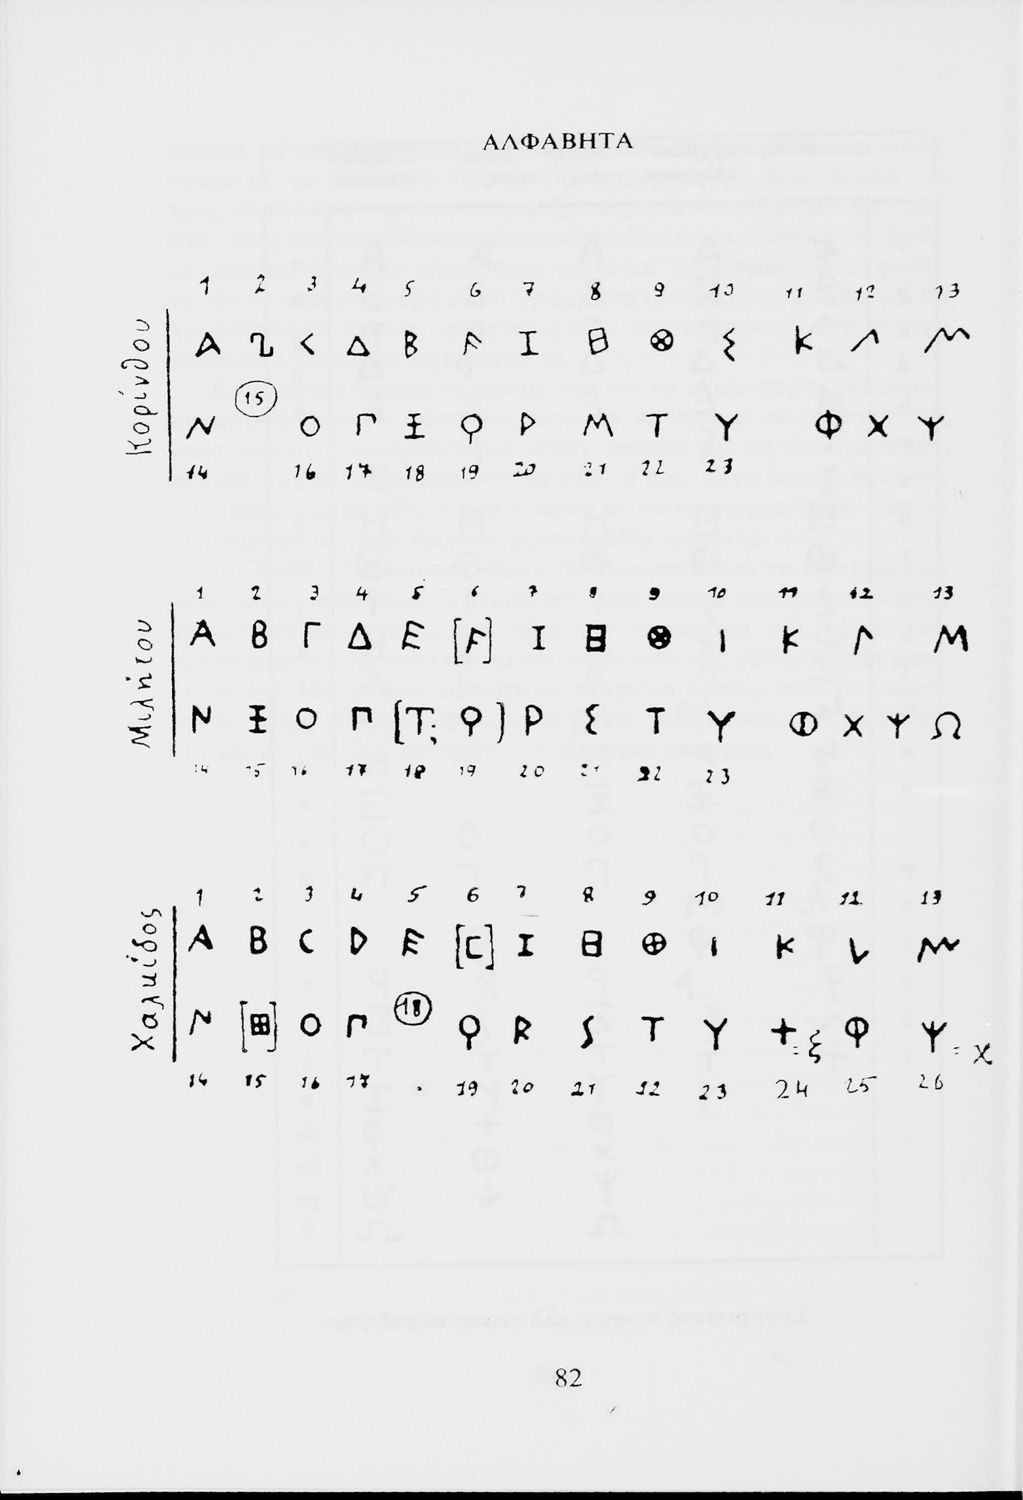 ΑΛΦΑΒΗΤΑ
Κορίνθου
1 2 3 4 5 6 7 8 9 10 11 12 13
Α < Δ Β F Ι Θ Κ Λ
Ν 15 Ο Γ Ξ Ϙ Ρ Μ Τ Υ Φ Χ Ψ
14 16 17 18 19 20 21 22 23
Μιλήτου
1 2 3 4 5 6 7 8 9 10 11 12 13
Α Β Γ Δ Ε [F] Ι Η ⊗ Ι Κ Μ
Ν Ξ Ο Π [Τ; Ϙ] Ρ Σ Τ Υ Φ Χ Ψ Ω
14 15 16 17 18 19 20 21 22 23
Χαλκίδος
1 2 3 4 5 6 7 8 9 10 11 12 13
Α Β C D Ε [C] Ι Η ⊕ Ι Κ Μ
Ν [⊞] Ο Π 18 Ϙ R S Τ Υ + = ξ Φ Ψ = χ
14 15 16 17 19 20 21 22 23 24 25 26
82